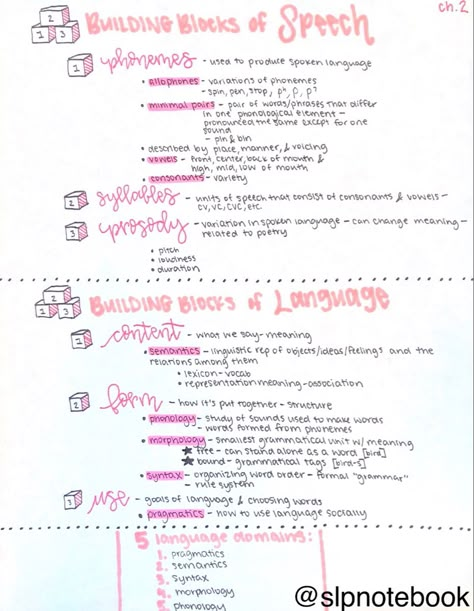 ch.2
2
1 3
Building Blocks of Speech
1 phonemes - used to produce spoken language
• allophones - variations of phonemes
- spin, pen, stop, pʰ, p, p˺
• minimal pairs - pair of words/phrases that differ
in one phonological element -
pronounced the same except for one
sound
- pin & bin
• described by place, manner, & voicing
• vowels - front, center, back of mouth &
high, mid, low of mouth
• consonants - variety
2 syllables - units of speech that consist of consonants & vowels -
CV, VC, CVC, etc.
3 prosody - variation in spoken language - can change meaning -
related to poetry
• pitch
• loudness
• duration
Building Blocks of Language
1 content - what we say - meaning
• semantics - linguistic rep of objects/ideas/feelings and the
relations among them
• lexicon - vocab
• representation meaning - association
2 form - how it's put together - structure
• phonology - study of sounds used to make words
- words formed from phonemes
• morphology - smallest grammatical unit w/ meaning
★ free - can stand alone as a word [bird]
★ bound - grammatical tags [bird-s]
• syntax - organizing word order - formal "grammar"
- rule system
3 use - goals of language & choosing words
• pragmatics - how to use language socially
5 language domains:
1. pragmatics
2. semantics
3. syntax
4. morphology
5. phonology
@slpnotebook